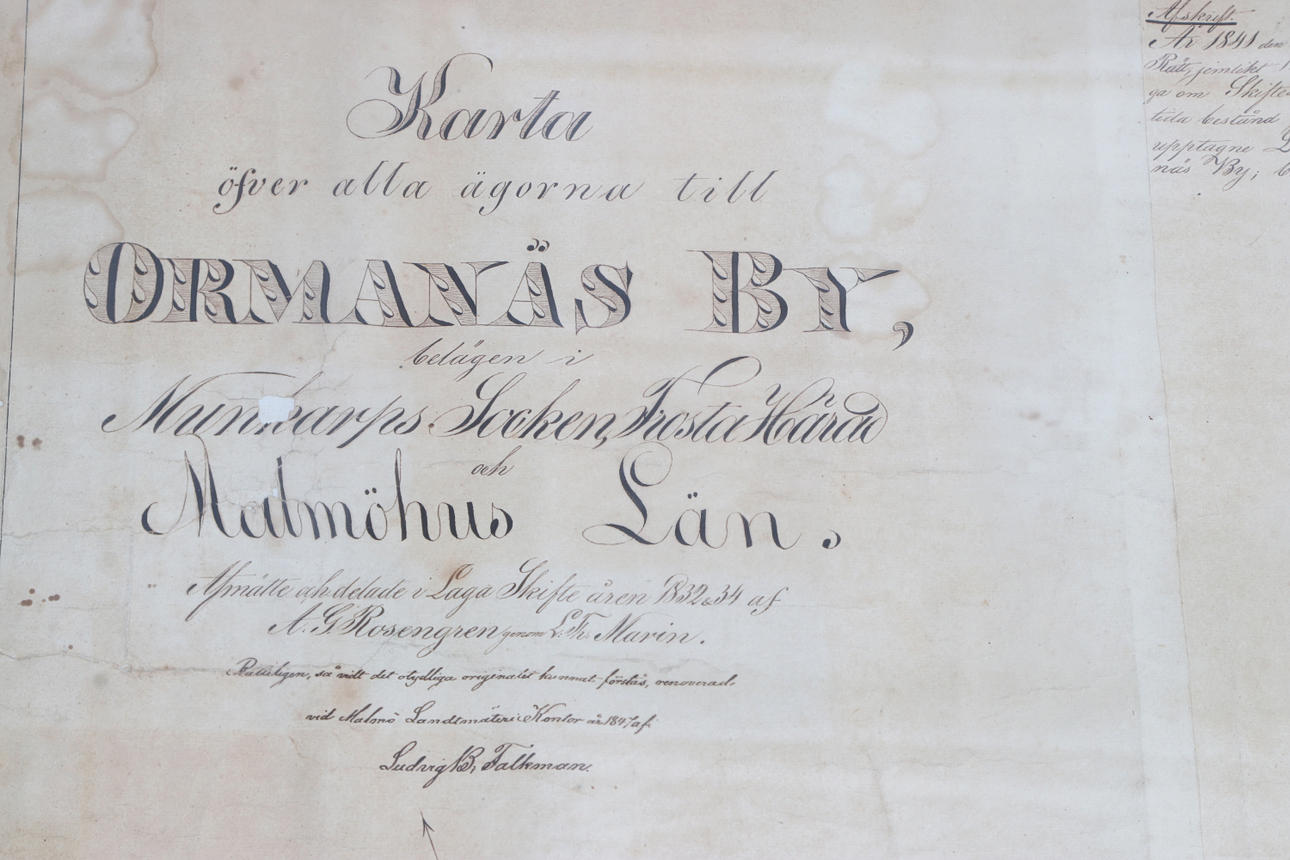 Karta
öfver alla ägorna till
ORMANÄS BY,
belägen i
Munkarps Socken, Frosta Härad
och
Malmöhus Län.
Afmätte och delade i Laga Skifte åren 1832 & 34 af
A. G. Rosengren genom L. Fr. Marin.
Rätteligen, så vidt det otydliga originalet kunnat förstås, renoverad,
vid Malmö Landtmäteri Kontor år 1847 af
Ludvig B, Falkman.
Afskrift.
År 1841 den
Rätt, jemlikt
ga om Skifte
bestånd
upptagne
näs By;